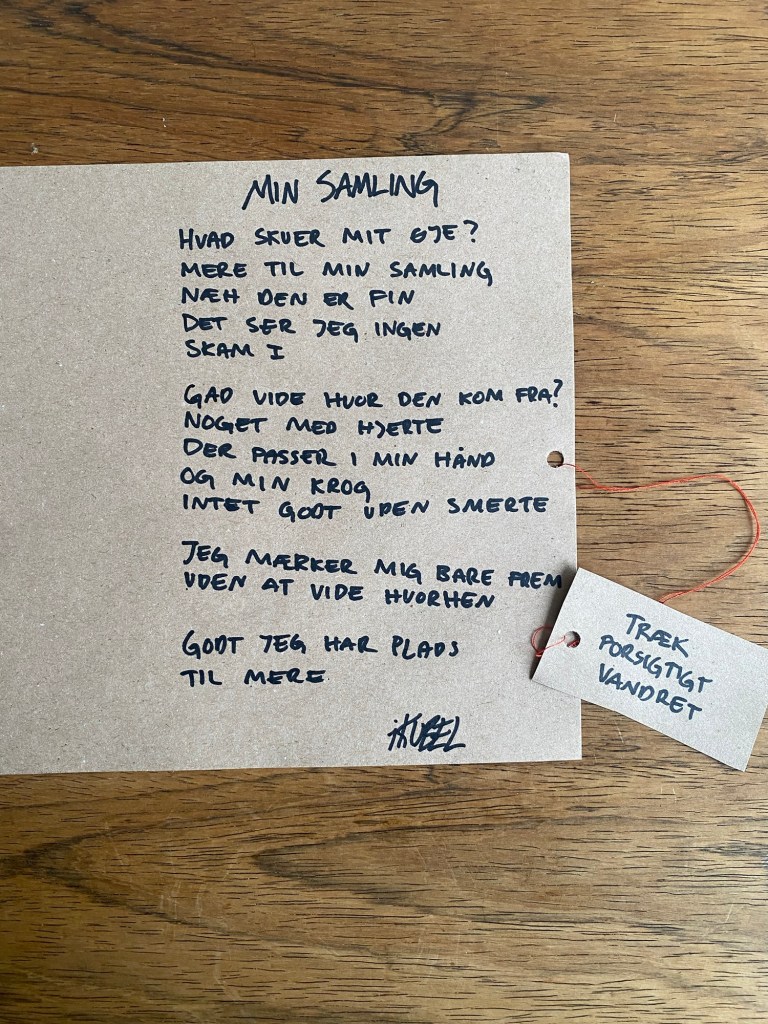 MIN SAMLING
HVAD SKUER MIT ØJE?
MERE TIL MIN SAMLING
NÆH DEN ER FIN
DET SER JEG INGEN
SKAM I
GAD VIDE HVOR DEN KOM FRA?
NOGET MED HJERTE
DER PASSER I MIN HÅND
OG MIN KROG
INTET GODT UDEN SMERTE
JEG MÆRKER MIG BARE FREM
UDEN AT VIDE HVORHEN
GODT JEG HAR PLADS
TIL MERE
TRÆK
FORSIGTIGT
VANDRET